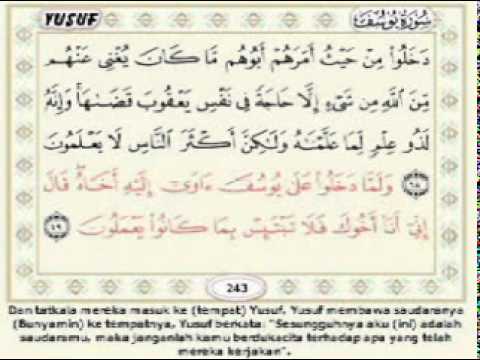 YUSUF سُورَةُ يُوسُفَ
دَخَلُوا۟ مِنْ حَيْثُ أَمَرَهُمْ أَبُوهُم مَّا كَانَ يُغْنِى عَنْهُم
مِّنَ ٱللَّهِ مِن شَىْءٍ إِلَّا حَاجَةً فِى نَفْسِ يَعْقُوبَ قَضَىٰهَا ۚ وَإِنَّهُۥ
لَذُو عِلْمٍ لِّمَا عَلَّمْنَٰهُ وَلَٰكِنَّ أَكْثَرَ ٱلنَّاسِ لَا يَعْلَمُونَ
٦٨ وَلَمَّا دَخَلُوا۟ عَلَىٰ يُوسُفَ ءَاوَىٰٓ إِلَيْهِ أَخَاهُ ۖ قَالَ
إِنِّىٓ أَنَا۠ أَخُوكَ فَلَا تَبْتَئِسْ بِمَا كَانُوا۟ يَعْمَلُونَ ٦٩
243
Dan tatkala mereka masuk ke (tempat) Yusuf, Yusuf membawa saudaranya
(Bunyamin) ke tempatnya, Yusuf berkata: "Sesungguhnya aku (ini) adalah
saudaramu, maka janganlah kamu berdukacita terhadap apa yang telah
mereka kerjakan".